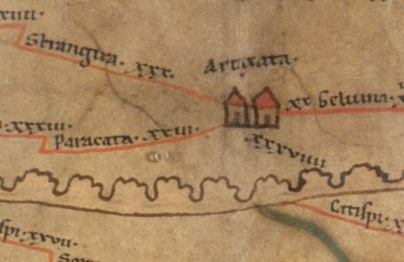 xxiii.
Strangira. xxx.
Artaxata.
xx Geluina. X
xxxiii.
Paracata. xxiii.
xxxviiii
Ctispi. X
spi. xxvii.